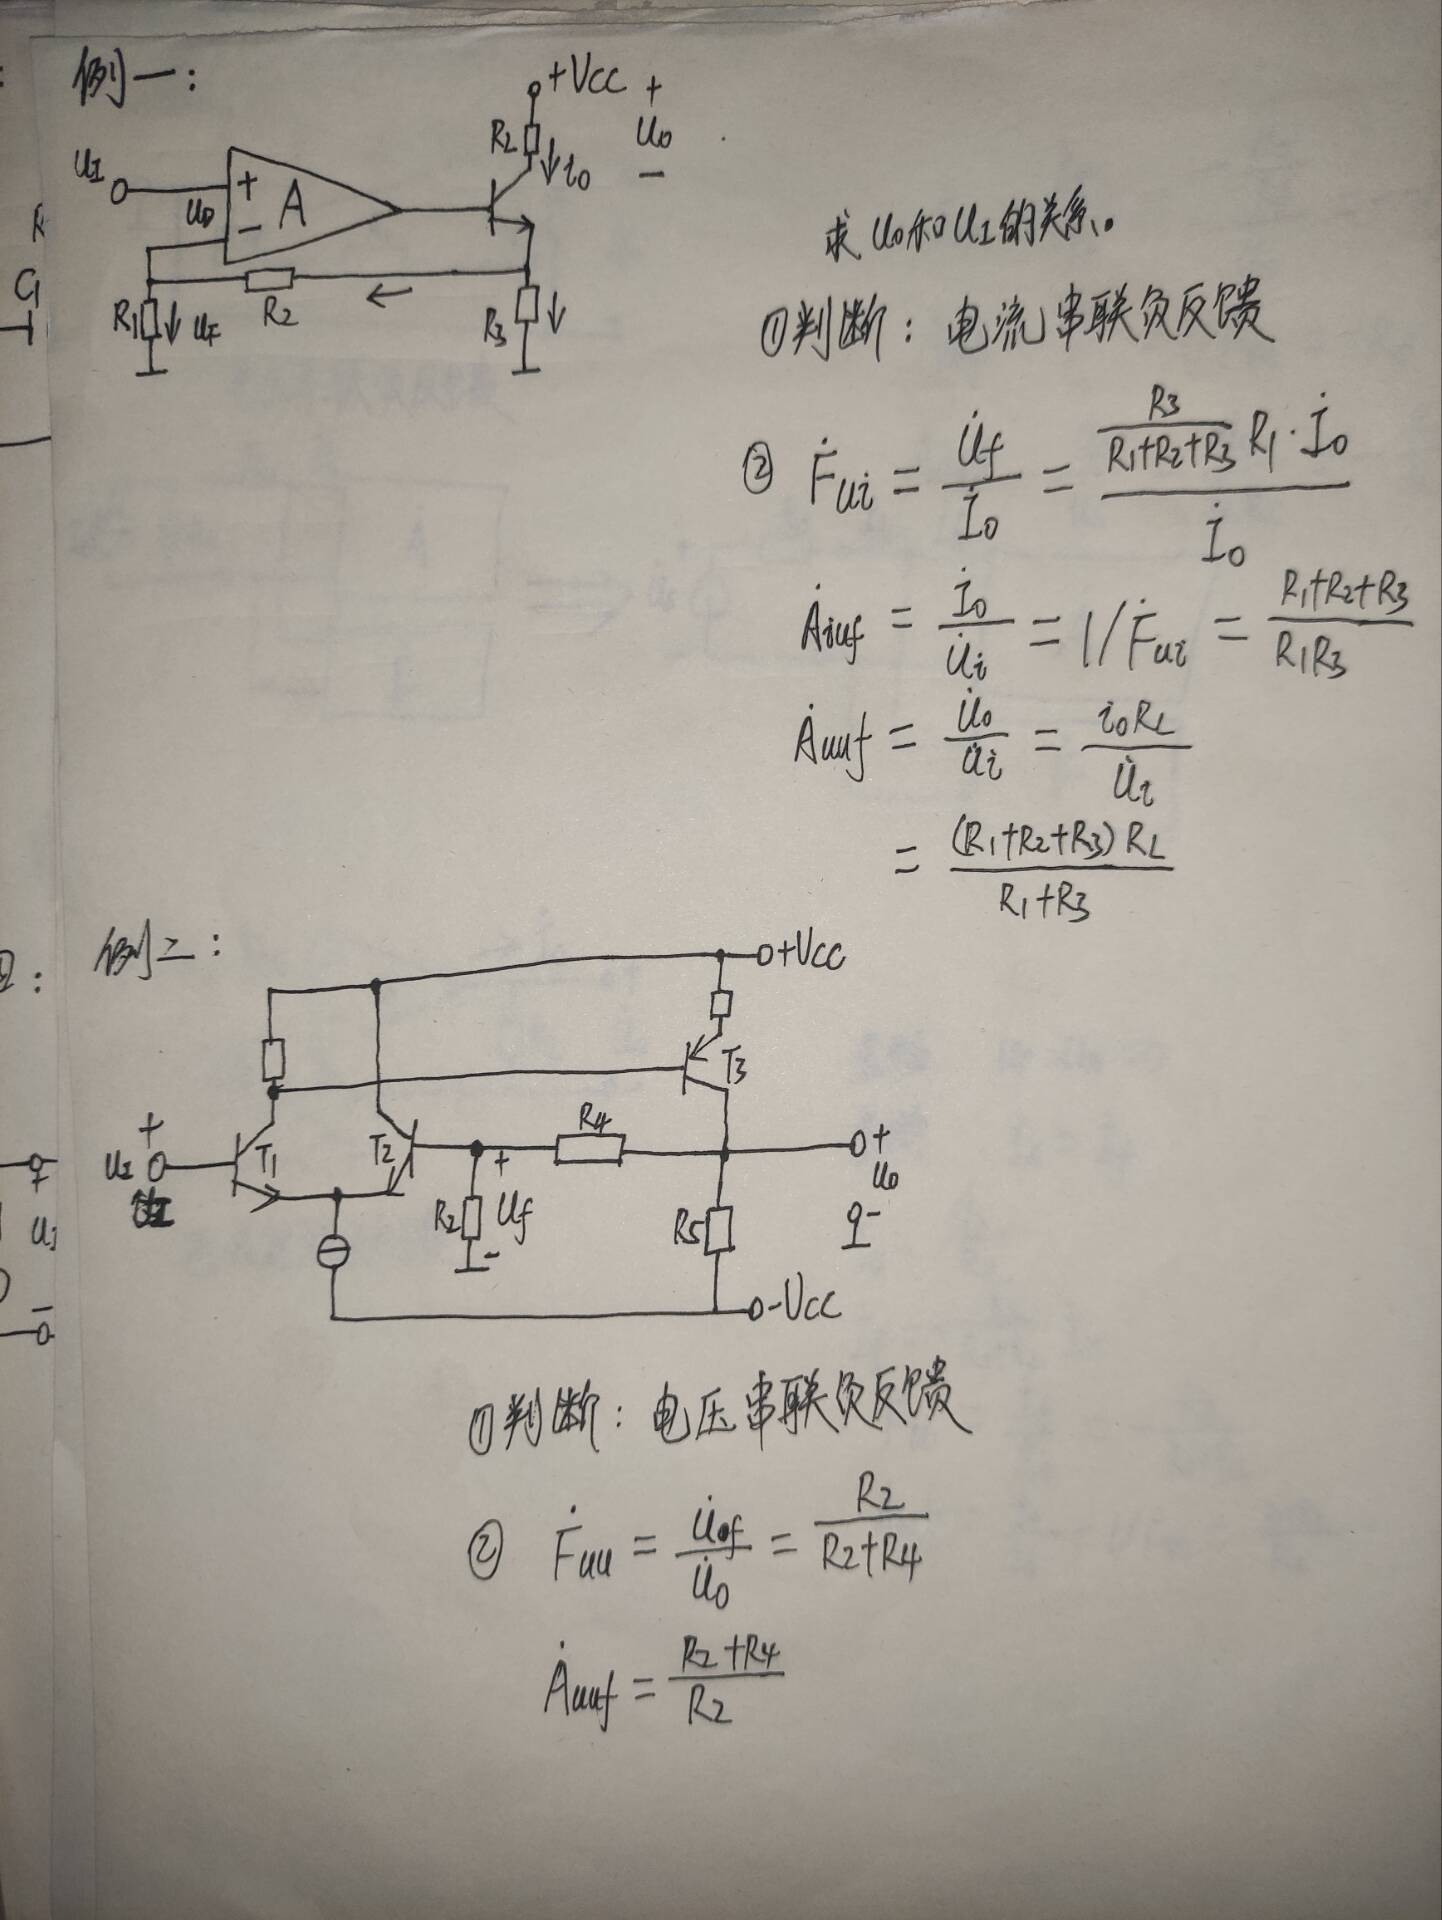 例一：
+Vcc
+
R2
uo
-
io
uI
uD
+
A
-
R1
uF
R2
R3
求 uo和uI的关系。
①判断：电流串联负反馈
② Ḟui = U̇f / İo = (R3/(R1+R2+R3) R1·İo) / İo
Ȧiuf = İo / U̇i = 1/Ḟui = (R1+R2+R3) / (R1R3)
Ȧuuf = U̇o / U̇i = ioRL / U̇i
= (R1+R2+R3)RL / (R1+R3)
例二：
+Vcc
T3
R4
+
uI
T1
T2
+
Uf
-
R2
R5
+
uo
-
-Vcc
①判断：电压串联负反馈
② Ḟuu = U̇of / U̇o = R2 / (R2+R4)
Ȧuuf = (R2+R4) / R2